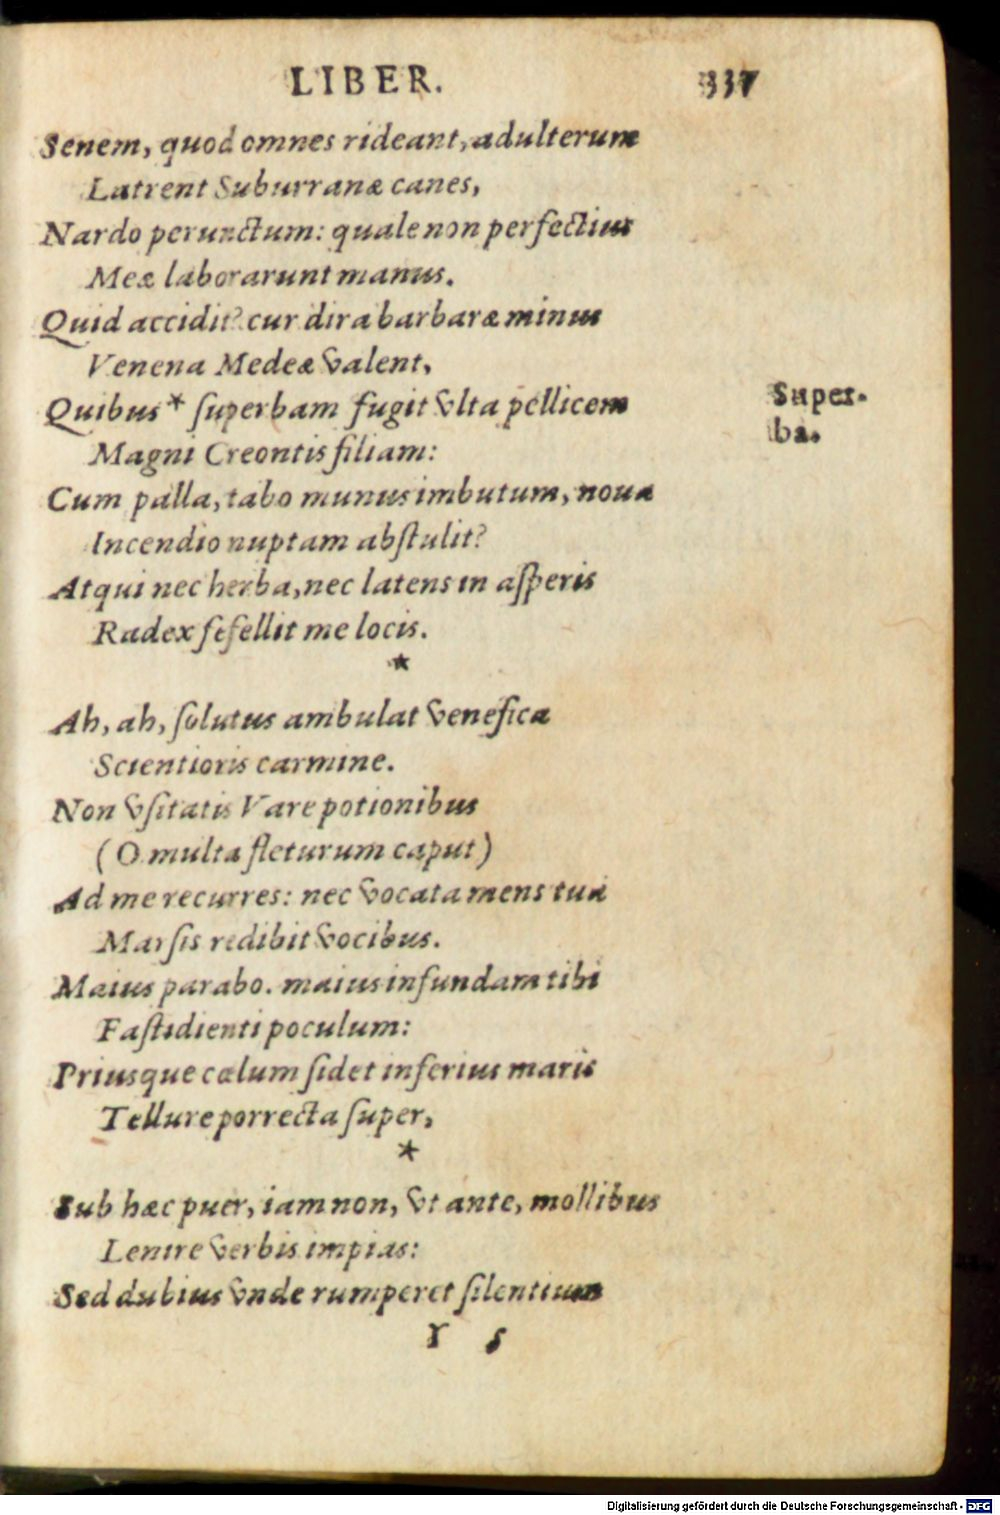 LIBER. 337
Senem, quod omnes rideant, adulterum
Latrent Suburranæ canes,
Nardo perunctum: quale non perfectius
Meæ laborarunt manus.
Quid accidit? cur dira barbaræ minus
Venena Medeæ valent,
Quibus * ſuperbam fugit vlta pellicem
Super-
ba.
Magni Creontis filiam:
Cum palla, tabo munus imbutum, noua
Incendio nuptam abſtulit?
Atqui nec herba, nec latens in aſperis
Radex fefellit me locis.
*
Ah, ah, ſolutus ambulat venefica
Scientioris carmine.
Non vſitatis Vare potionibus
(O multa fleturum caput)
Ad me recurres: nec vocata mens tua
Marſis redibit vocibus.
Maius parabo. maius infundam tibi
Faſtidienti poculum:
Priusque cœlum ſidet inferius maris
Tellure porrecta ſuper,
*
Sub hæc puer, iam non, vt ante, mollibus
Lenire verbis impias:
Sed dubius vnde rumperet ſilentium
Y 5
Digitalisierung gefördert durch die Deutsche Forschungsgemeinschaft - DFG